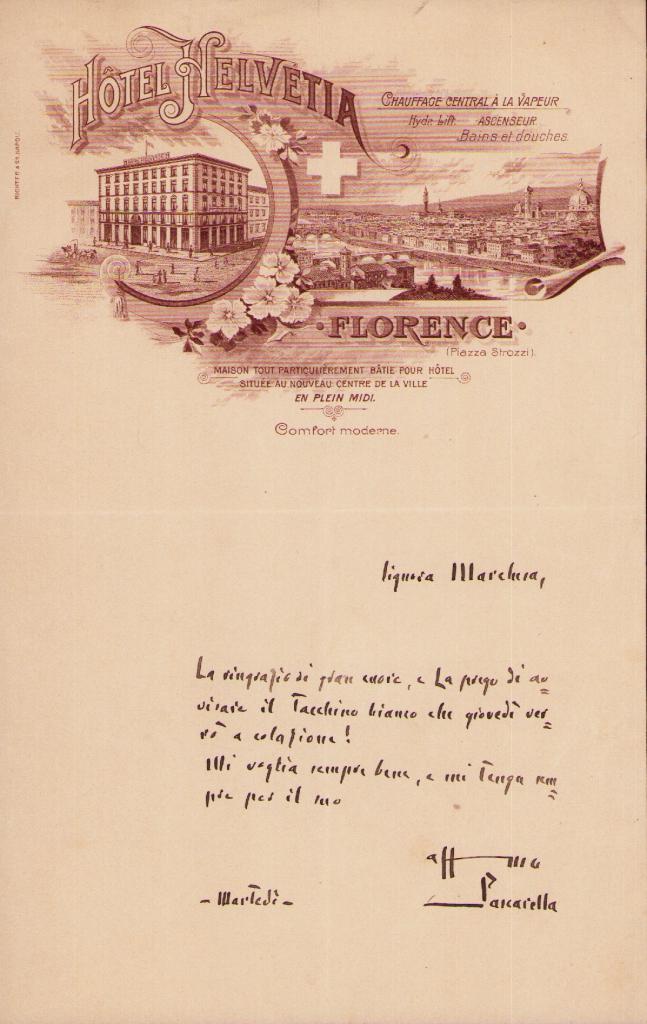 HÔTEL HELVETIA
CHAUFFAGE CENTRAL À LA VAPEUR
Hydr. Lift ASCENSEUR
Bains et douches.
RICHTER & Co. NAPOLI.
· FLORENCE ·
(Piazza Strozzi).
MAISON TOUT PARTICULIÈREMENT BÂTIE POUR HÔTEL
SITUÉE AU NOUVEAU CENTRE DE LA VILLE
EN PLEIN MIDI.
Comfort moderne.
Signora Marchesa,
La ringrazio di gran cuore, e La prego di av=
visare il Tacchino bianco che giovedì ver=
rò a colazione!
Mi voglia sempre bene, e mi tenga sem=
pre per il suo
aff mo
Pascarella
- Martedì -